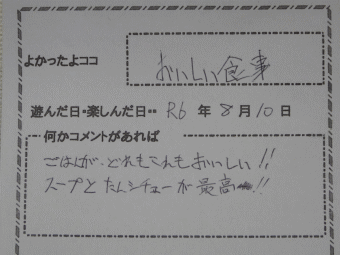 よかったよココ おいしい食事
遊んだ日・楽しんだ日・・ R6 年 8 月 10 日
何かコメントがあれば
ごはんが、どれもこれもおいしい!!
スープとたんシチューが最高!!